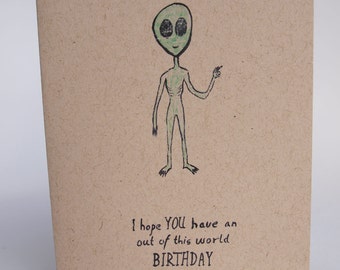 I hope YOU have an
out of this world
BIRTHDAY